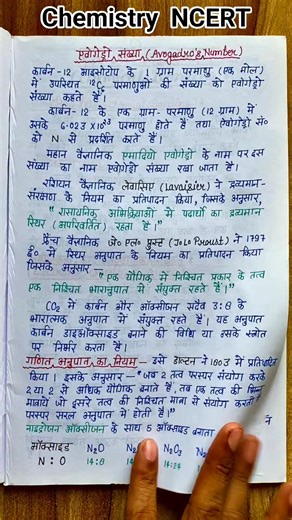 Chemistry NCERT
एवोगेड्रो संख्या (Avogadro's Number)
कार्बन-12 आइसोटोप के 1 ग्राम परमाणु (एक मोल)
में उपस्थित ¹²C परमाणुओं की संख्या को एवोगेड्रो
संख्या कहते हैं।
कार्बन-12 के एक ग्राम-परमाणु (12 ग्राम) में
उसके 6.023 ×10²³ परमाणु होते हैं तथा ऐवोगेड्रो सं०
को N से प्रदर्शित करते हैं।
महान वैज्ञानिक एमारियो एवोगेड्रो के नाम पर इस
संख्या का नाम एवोगेड्रो संख्या रखा जाता है।
रशियन वैज्ञानिक लेवासिए (Lavaisier) ने द्रव्यमान-
संरक्षण के नियम का प्रतिपादन किया, जिसके अनुसार,
"रासायनिक अभिक्रियाओं में पदार्थो का द्रव्यमान
स्थिर (अपरिवर्तित) रहता है।"
फ्रेंच वैज्ञानिक जे० एल० प्रूस्ट (J.L. Proust) ने 1797
ई० में स्थिर अनुपात के नियम का प्रतिपादन किया
जिसके अनुसार —
"एक यौगिक में निश्चित प्रकार के तत्व
एक निश्चित भारानुपात में संयुक्त रहते हैं।"
CO₂ में कार्बन और ऑक्सीजन सदैव 3:8 के
भारात्मक अनुपात में संयुक्त रहते हैं। यह अनुपात
कार्बन डाइऑक्साइड बनाने की विधि या इसके स्त्रोत
पर निर्भर करता है।
गणित अनुपात का नियम — इसे डाल्टन ने 1803 में प्रतिपादित
किया। इसके अनुसार - "जब 2 तत्व परस्पर संयोग करके
2 या 2 से अधिक यौगिक बनाते हैं, तब एक तत्व की भिन्न
मात्रायें जो दूसरे तत्व की निश्चित मात्रा से संयोग करती
परस्पर सरल अनुपात में होती हैं।"
नाइट्रोजन ऑक्सीजन के साथ 5 ऑक्साइड बनाता
ऑक्साइड N₂O N₂O₃
N : O 14:8 14:24